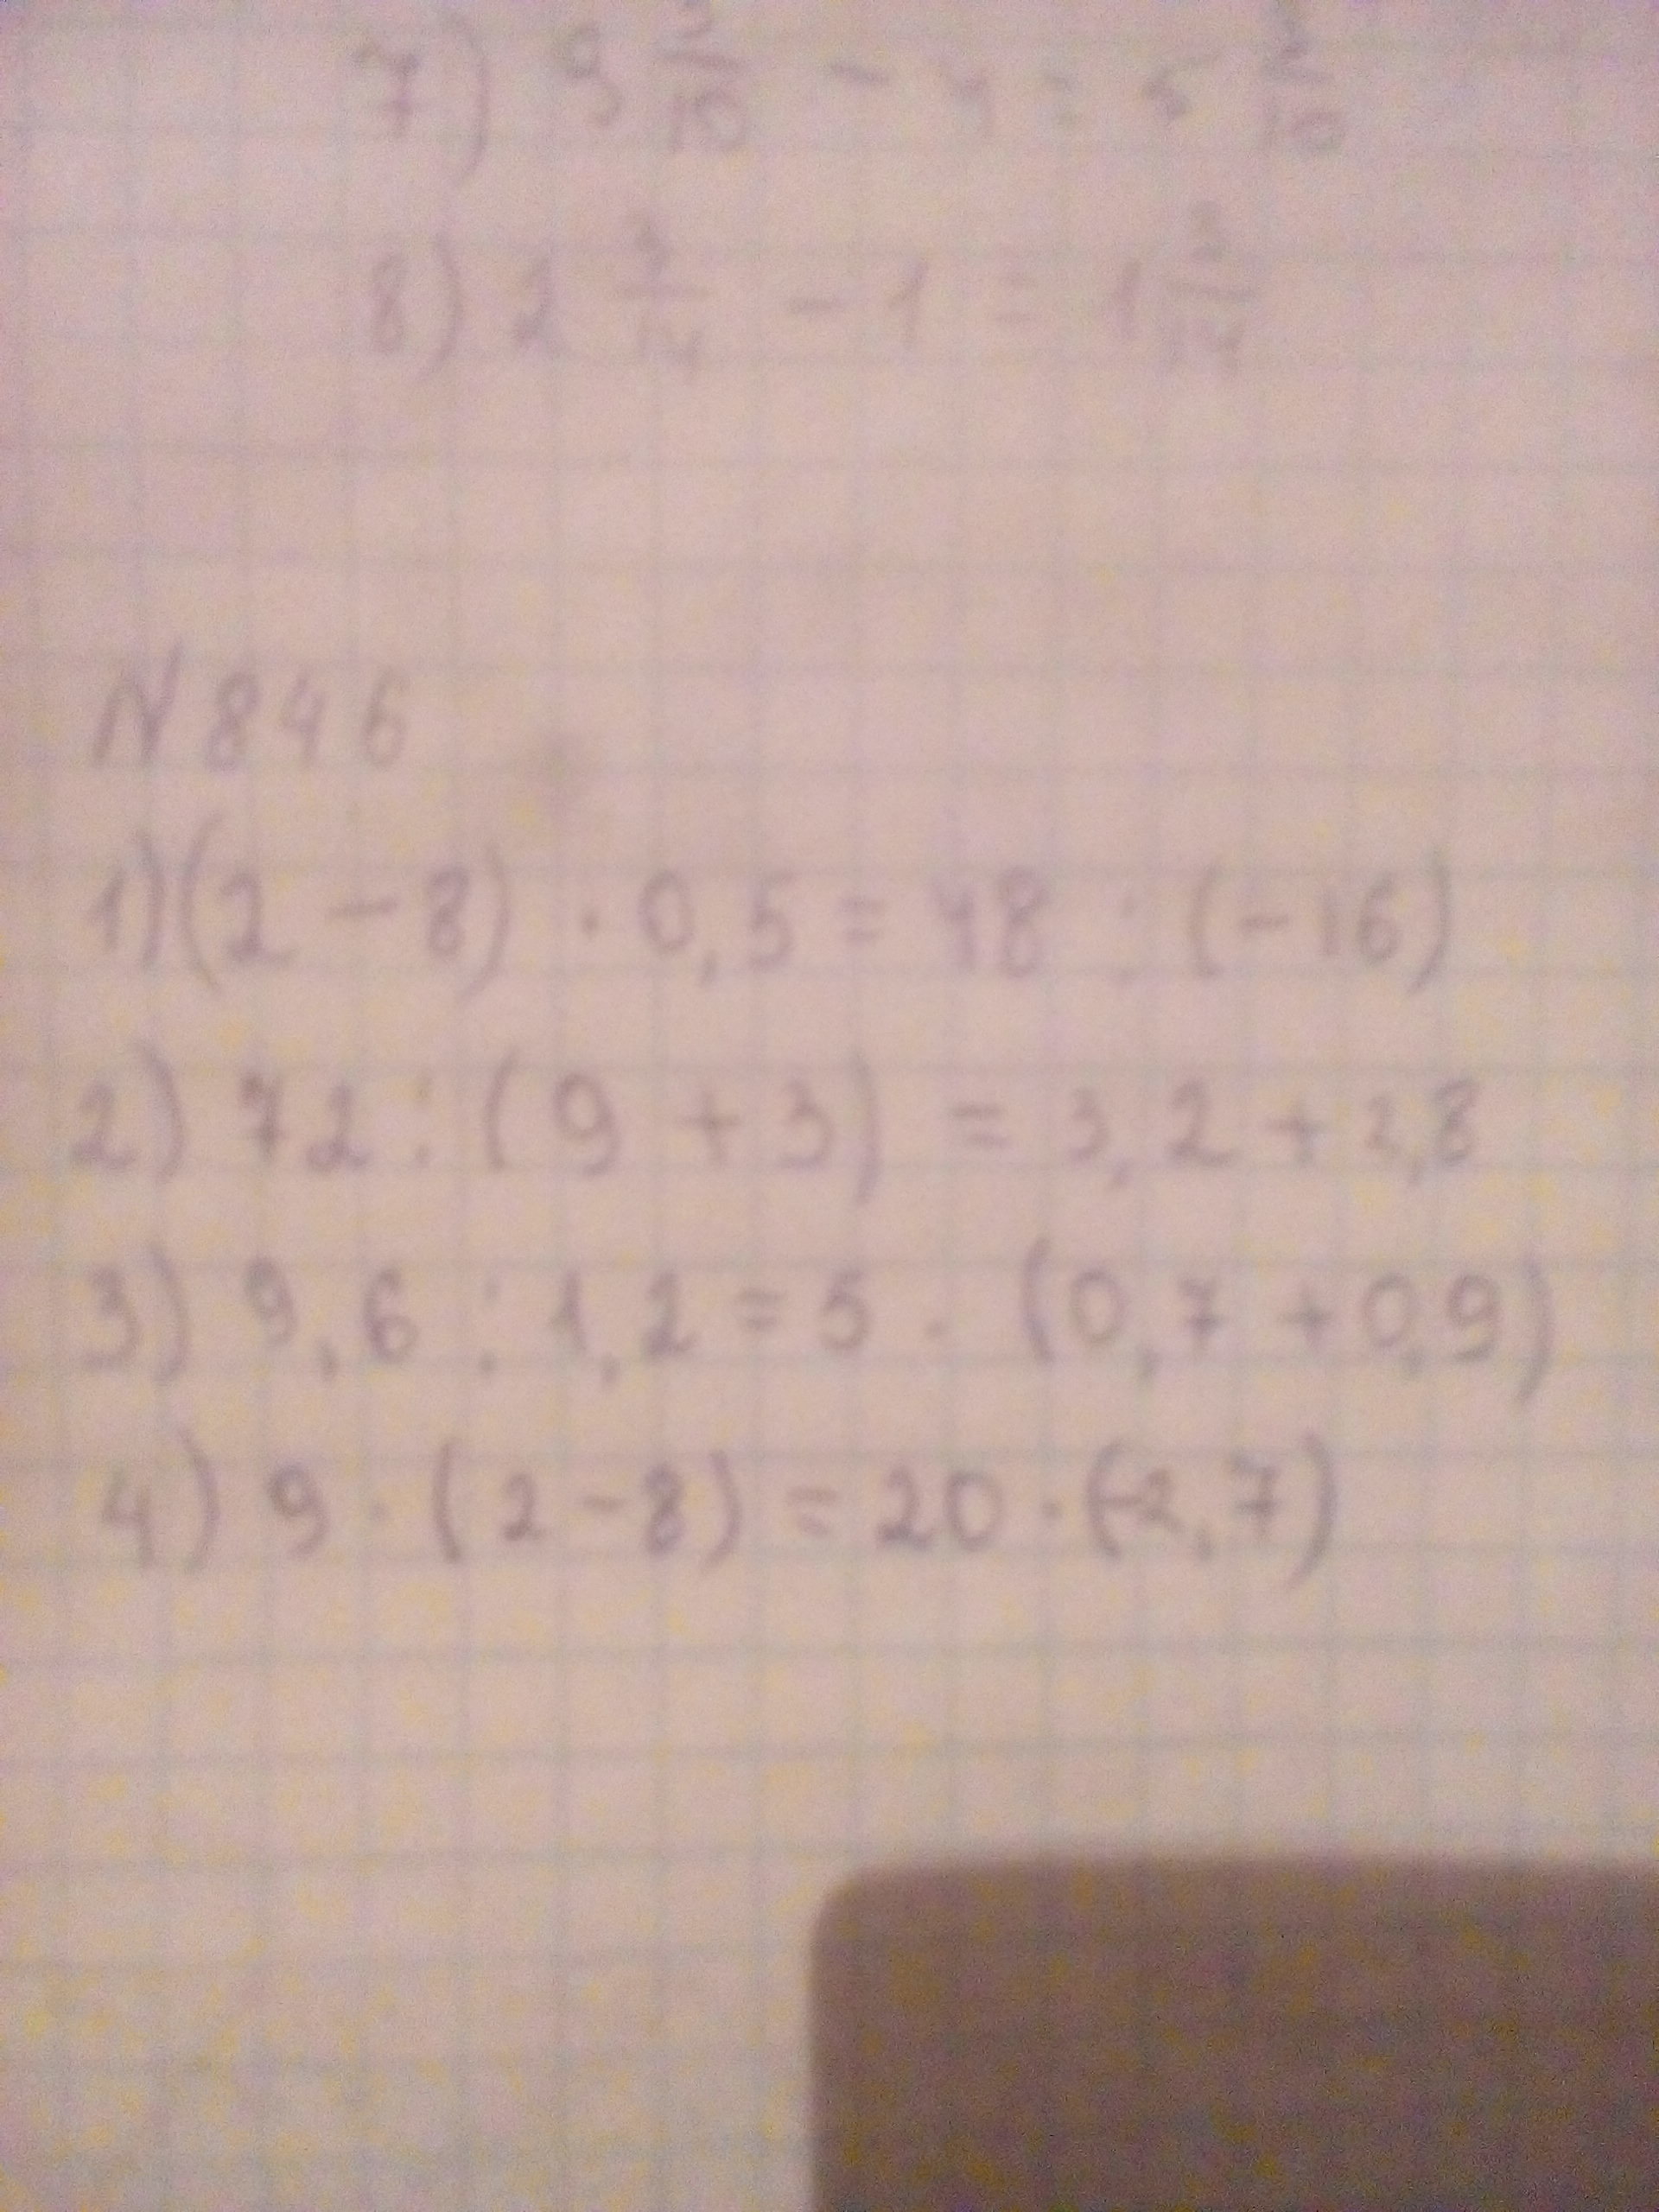 7) 9 3/10 - 4 = 5 3/10
8) 2 3/14 - 1 = 1 3/14
N 846
1) (2 - 8) · 0,5 = 48 : (-16)
2) 72 : (9 + 3) = 3,2 + 2,8
3) 9,6 : 1,2 = 5 · (0,7 + 0,9)
4) 9 · (2 - 8) = 20 · (-2,7)